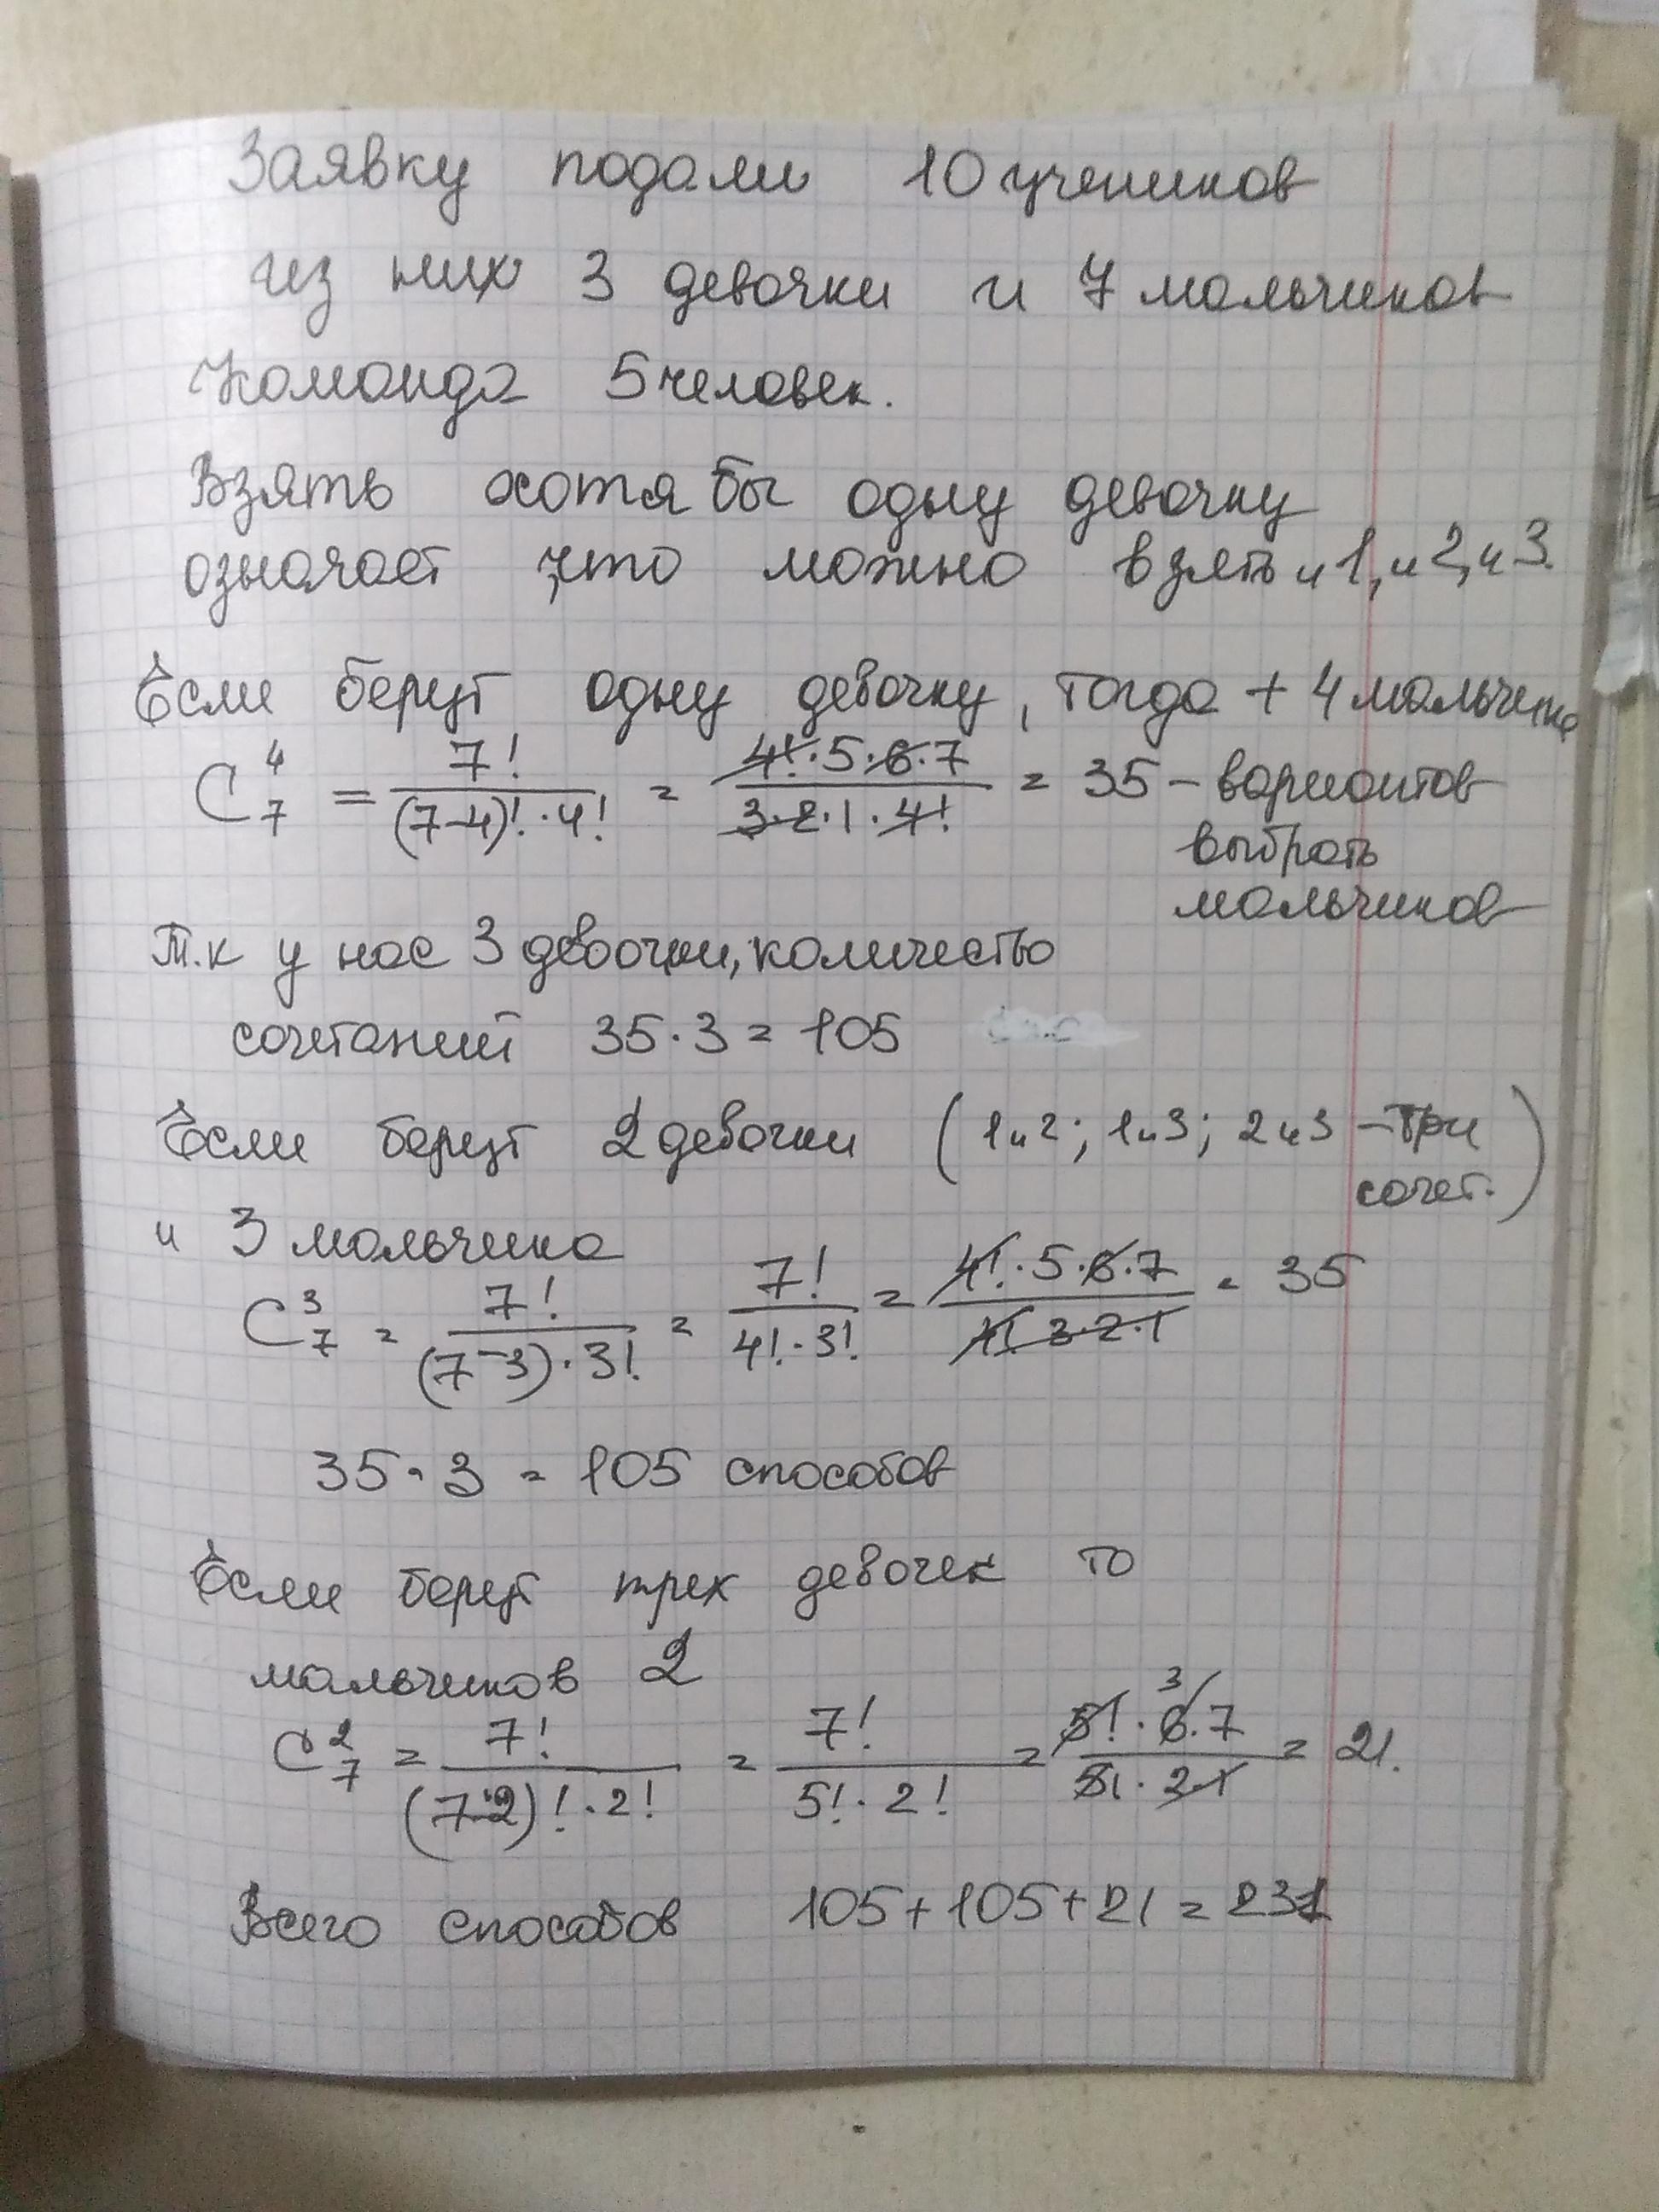 Заявку подали 10 учеников
из них 3 девочки и 7 мальчиков
Команда 5 человек.
Взять хотя бы одну девочку
означает что можно взять и 1, и 2, и 3.
Если берут одну девочку, тогда + 4 мальчика
C⁴₇ = 7!/((7-4)!·4!) = (4!·5·6·7)/(3·2·1·4!) = 35 – вариантов
выбрать
мальчиков
Т.к у нас 3 девочки, количество
сочетаний 35·3 = 105
Если берут 2 девочки (1и2; 1и3; 2и3 – три
сочет.)
и 3 мальчика
C³₇ = 7!/((7-3)·3!) = 7!/(4!·3!) = (4!·5·6·7)/(4! 3·2·1) = 35
35·3 = 105 способов
Если берут трех девочек то
мальчиков 2
C²₇ = 7!/((7-2)!·2!) = 7!/(5!·2!) = (5!·6·7)/(5!·2·1) = 21.
Всего способов 105+105+21 = 231